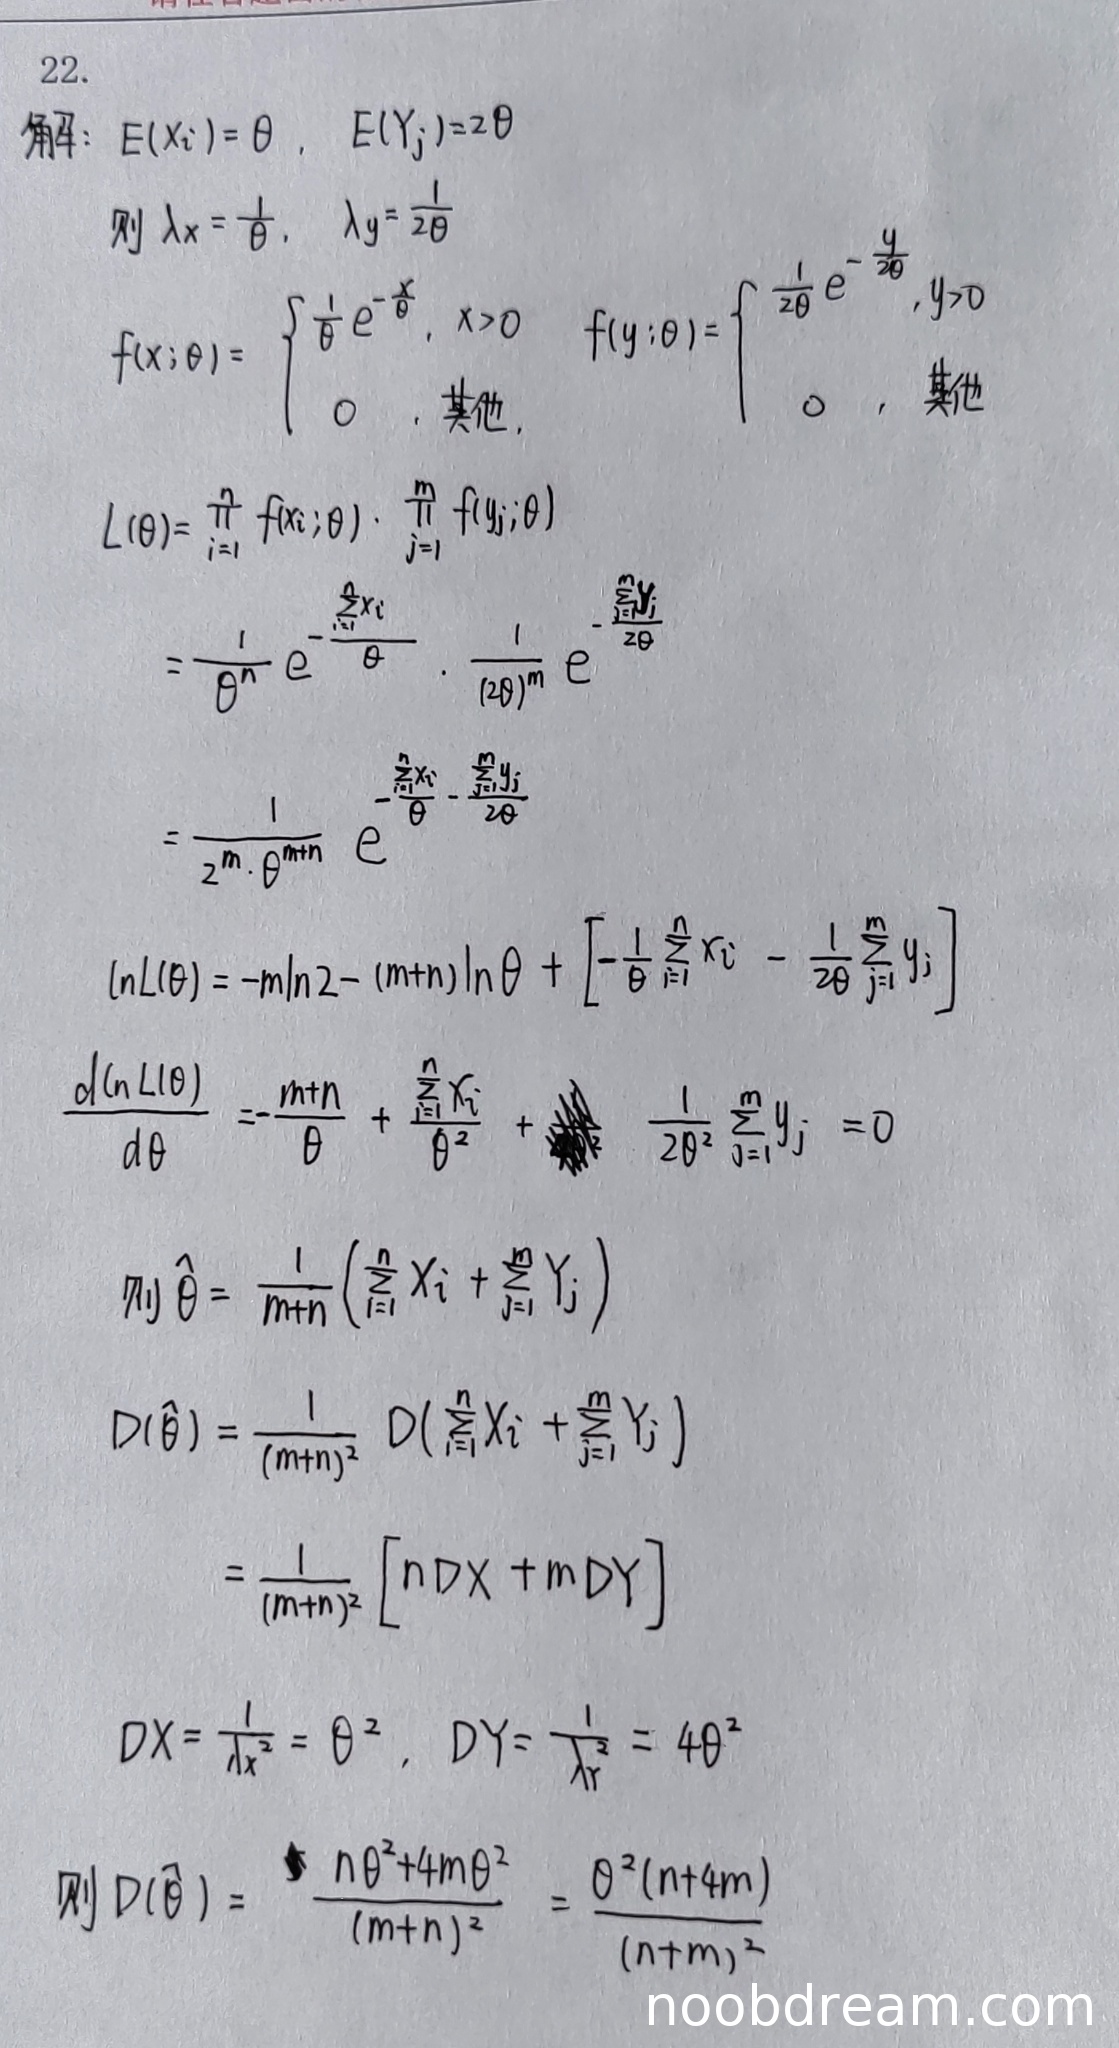 22.
解: E(Xi)=θ, E(Yj)=2θ
则 λx = 1/θ, λy = 1/2θ
f(x;θ) = { 1/θ e^(-x/θ), x>0 f(y;θ) = { 1/2θ e^(-y/2θ), y>0
0, 其他. 0, 其他
L(θ) = ∏_{i=1}^{n} f(xi;θ) · ∏_{j=1}^{m} f(yj;θ)
= 1/θ^n e^(-∑_{i=1}^{n} xi / θ) · 1/(2θ)^m e^(-∑_{j=1}^{m} yj / 2θ)
= 1/(2^m·θ^(m+n)) e^(-∑_{i=1}^{n} xi / θ - ∑_{j=1}^{m} yj / 2θ)
lnL(θ) = -mln2-(m+n)lnθ + [-1/θ ∑_{i=1}^{n} xi - 1/2θ ∑_{j=1}^{m} yj]
dlnL(θ)/dθ = -(m+n)/θ + ∑_{i=1}^{n} xi / θ² + 1/2θ² ∑_{j=1}^{m} yj = 0
则 θ̂ = 1/(m+n) (∑_{i=1}^{n} Xi + ∑_{j=1}^{m} Yj)
D(θ̂) = 1/(m+n)² D(∑_{i=1}^{n} Xi + ∑_{j=1}^{m} Yj)
= 1/(m+n)² [nDX + mDY]
DX = 1/λx² = θ², DY = 1/λY² = 4θ²
则 D(θ̂) = (nθ²+4mθ²)/(m+n)² = θ²(n+4m)/(n+m)²
noobdream.com